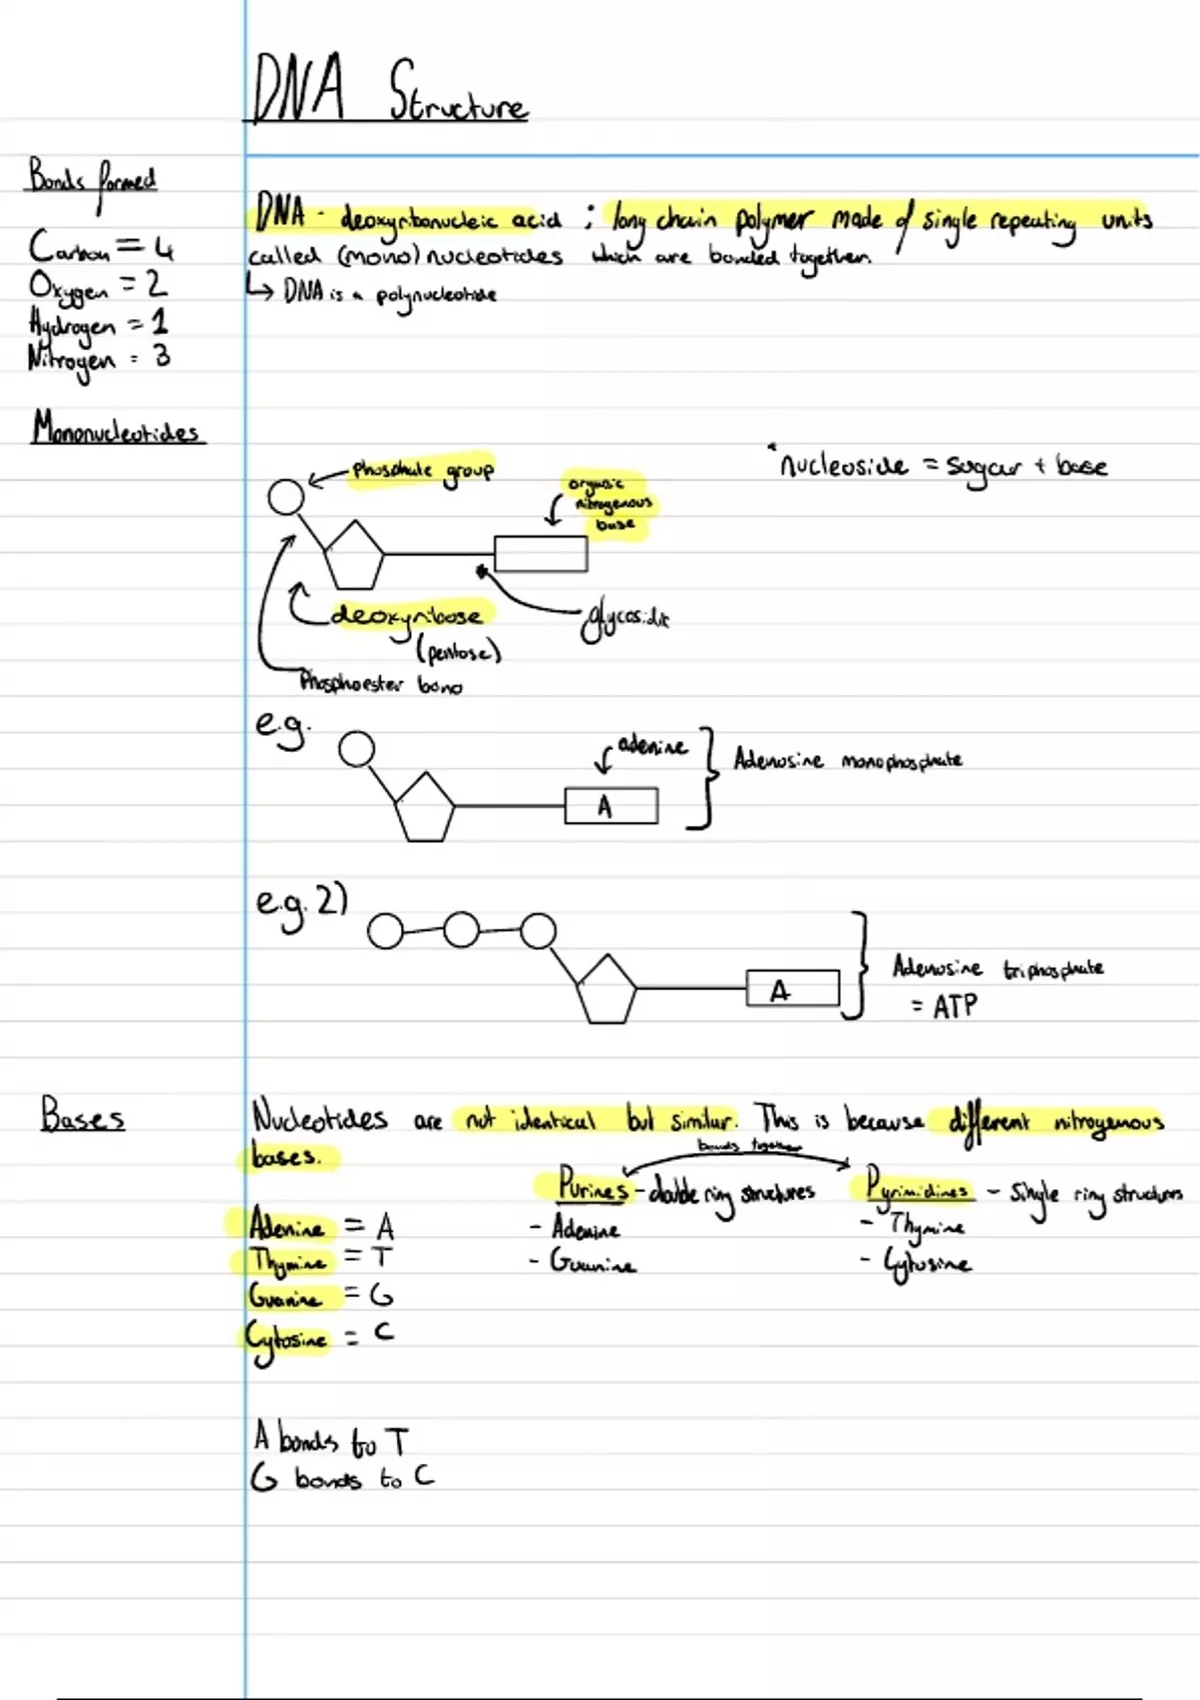 DNA Structure
Bonds formed
Carbon = 4
Oxygen = 2
Hydrogen = 1
Nitrogen = 3
DNA - deoxyribonucleic acid ; long chain polymer made of single repeating units
called (mono)nucleotides which are bonded together.
↳ DNA is a polynucleotide
Mononucleotides
*nucleoside = sugar + base
phosphate group
organic
nitrogenous
base
deoxyribose
(pentose)
glycosidic
Phosphoester bond
e.g.
adenine
A
Adenosine monophosphate
e.g. 2)
A
Adenosine triphosphate
= ATP
Bases
Nucleotides are not identical but similar. This is because different nitrogenous
bases.
bonds together
Purines - double ring structures
- Adenine
- Guanine
Pyrimidines - Single ring structures
- Thymine
- Cytosine
Adenine = A
Thymine = T
Guanine = G
Cytosine = C
A bonds to T
G bonds to C